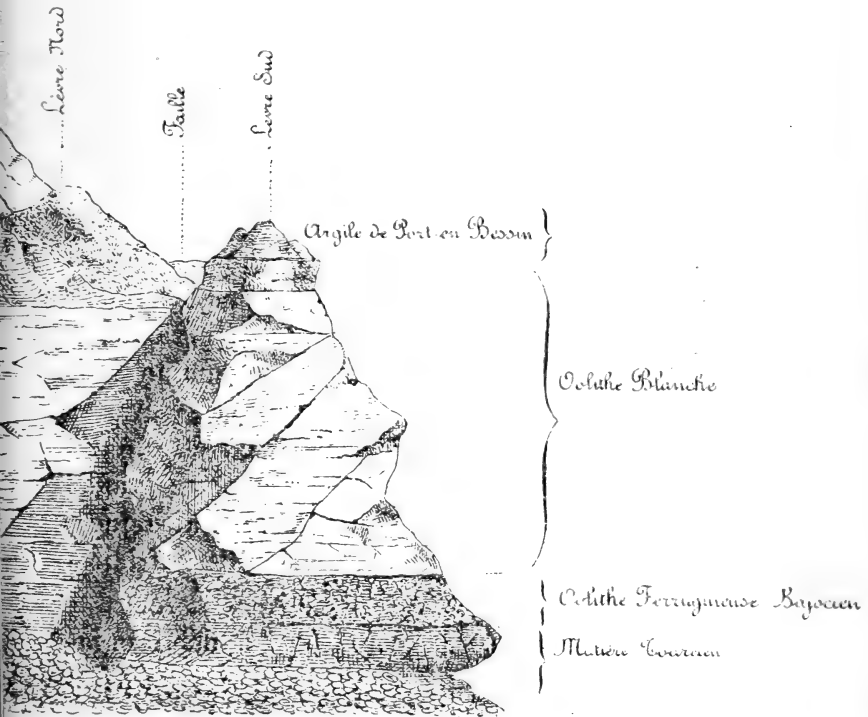 Lèvre Nord
Faille
Lèvre Sud
Argile de Port-en Bessin
Oolithe Blanche
Oolithe Ferrugineuse Bajocien
Malière Toarcien